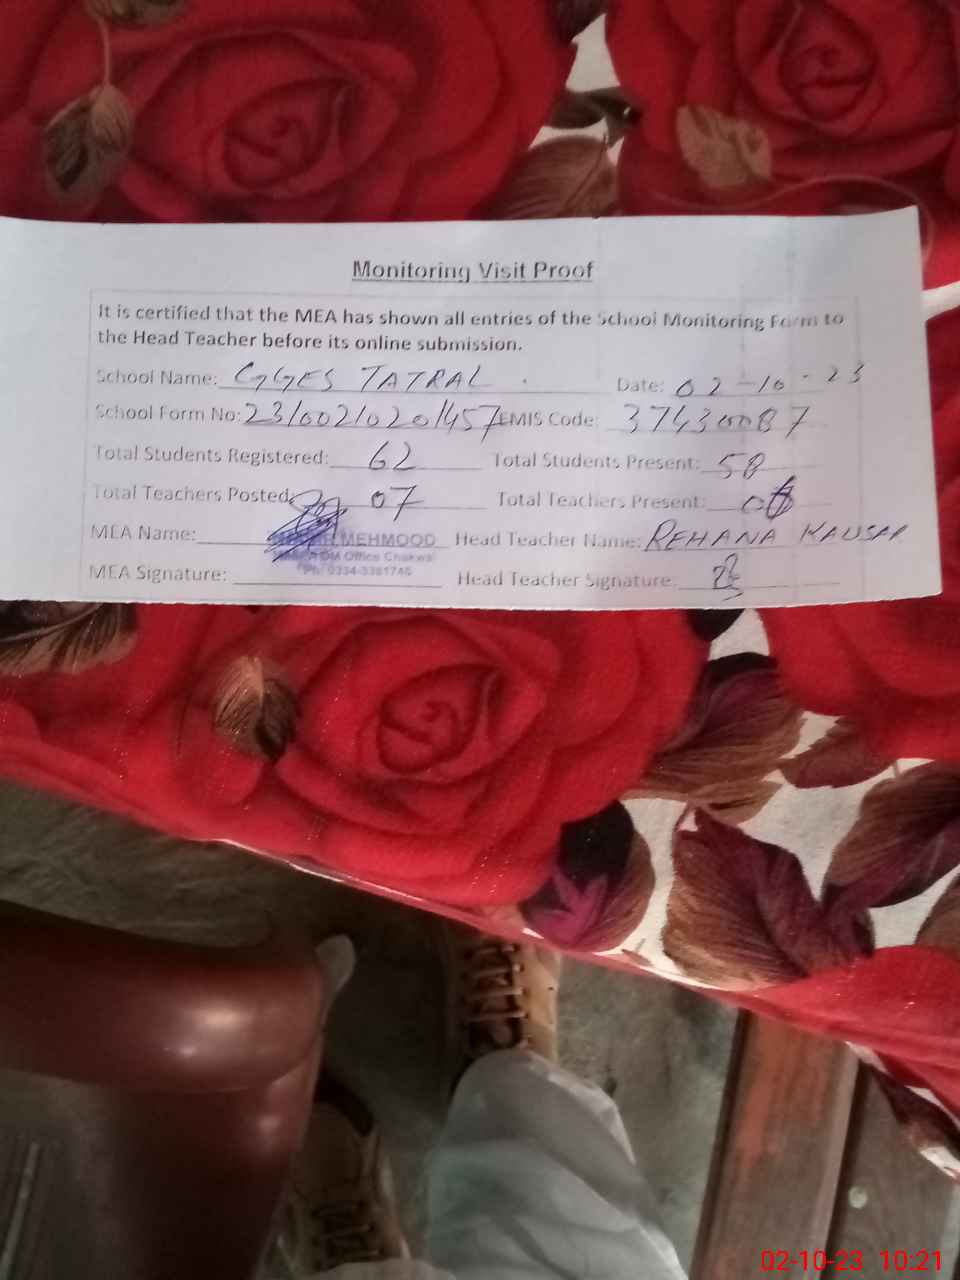 Monitoring Visit Proof
It is certified that the MEA has shown all entries of the School Monitoring Form to
the Head Teacher before its online submission.
School Name: GGES TATRAL . Date: 02-10-23
School Form No: 23/002/020/457 EMIS Code: 37430087
Total Students Registered: 62 Total Students Present: 58
Total Teachers Posted: 07 Total Teachers Present:
MEA Name: MEHMOOD Head Teacher Name: REHANA KAUSAR
DM Office Chakwal
MEA Signature: Ph: 0334-3381745 Head Teacher Signature:
02-10-23 10:21